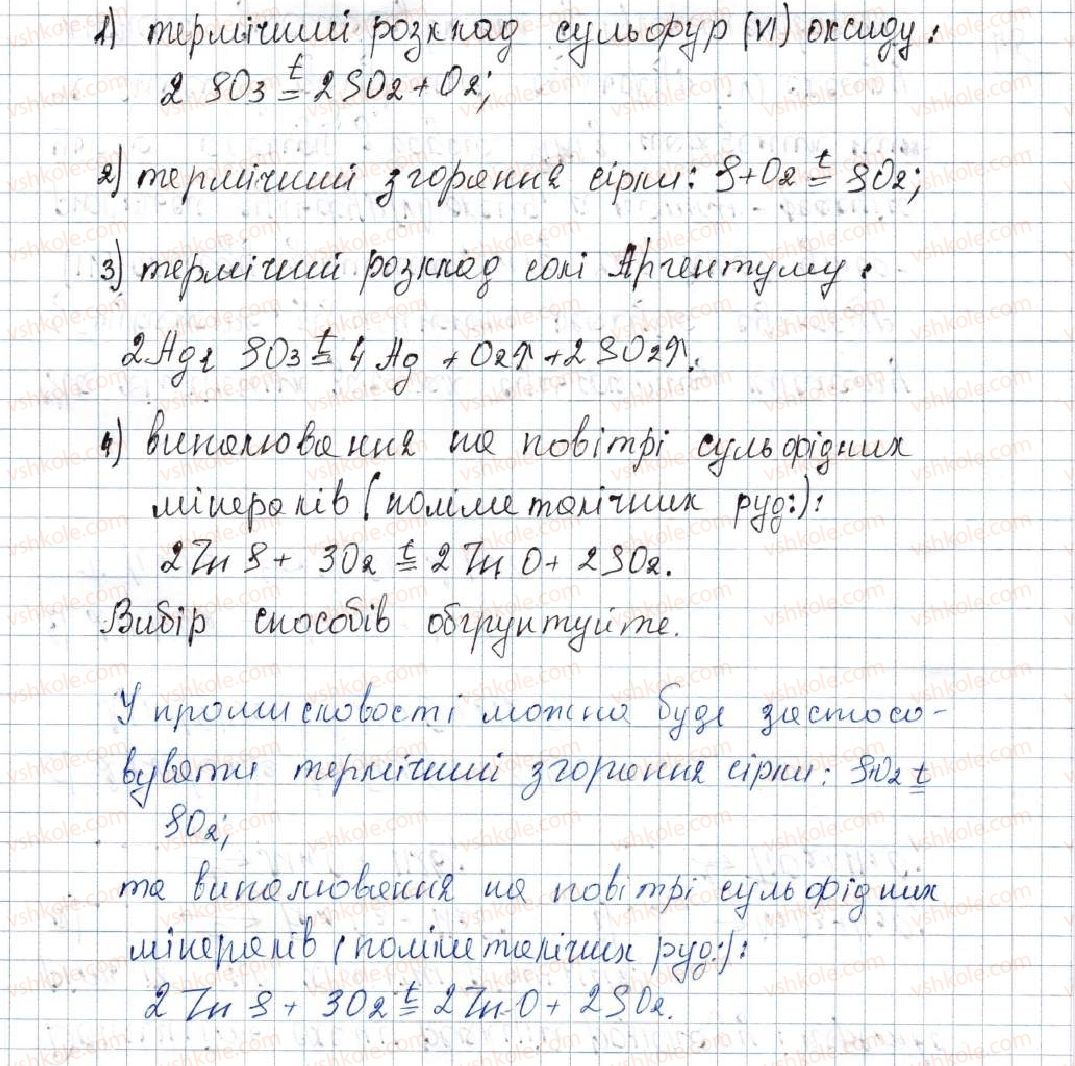 1) термічний розклад сульфур (VI) оксиду:
2 SO3 t= 2SO2 + O2;
2) термічний згорання сірки: S+O2 t= SO2;
3) термічний розклад солі Аргентуму:
2Ag2 SO3 t= 4 Ag + O2↑ + 2 SO2↑.
4) випалювання на повітрі сульфідних
мінералів (поліметалічних руд:):
2 Zn S + 3O2 t= 2 Zn O + 2SO2.
Вибір способів обгрунтуйте.
У промисловості можна буде застосо-
вувати термічний згорання сірки: SO2 t=
SO2;
та випалювання на повітрі сульфідних
мінералів (поліметалічних руд:):
2 Zn S + 3O2 t= 2 Zn O + 2SO2.
vshkole.com